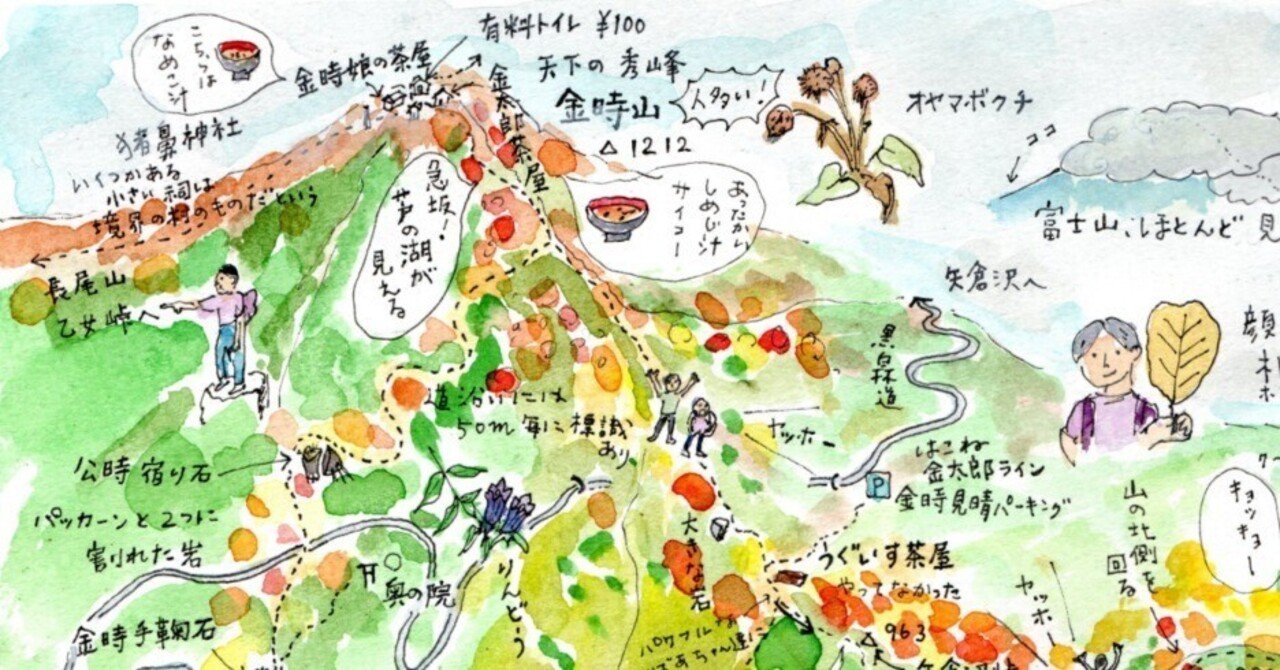 有料トイレ ¥100
こちらは
なめこ汁
金時娘の茶屋
天下の秀峰
金時山
△1212
人多い!
金太郎茶屋
オヤマボクチ
ココ
富士山、ほとんど見
猪鼻神社
いくつかある
小さい祠は
境界の村のものだという
急坂!
芦の湖が
見える
あったかい
しめじ汁
サイコー
矢倉沢へ
長尾山
乙女峠へ
黒白林道
道沿いには
50m毎に標識
あり
ヤッホー
はこね
金太郎ライン
金時見晴パーキング
P
公時宿り石
パッカーンと2つに
割れた岩
山の北側を
回る
キョッキョー
大きな岩
うぐいす茶屋
やってなかった
奥の院
りんどう
金時手鞠石
ヤッホ
パワフルな
ばあちゃん達に
△963